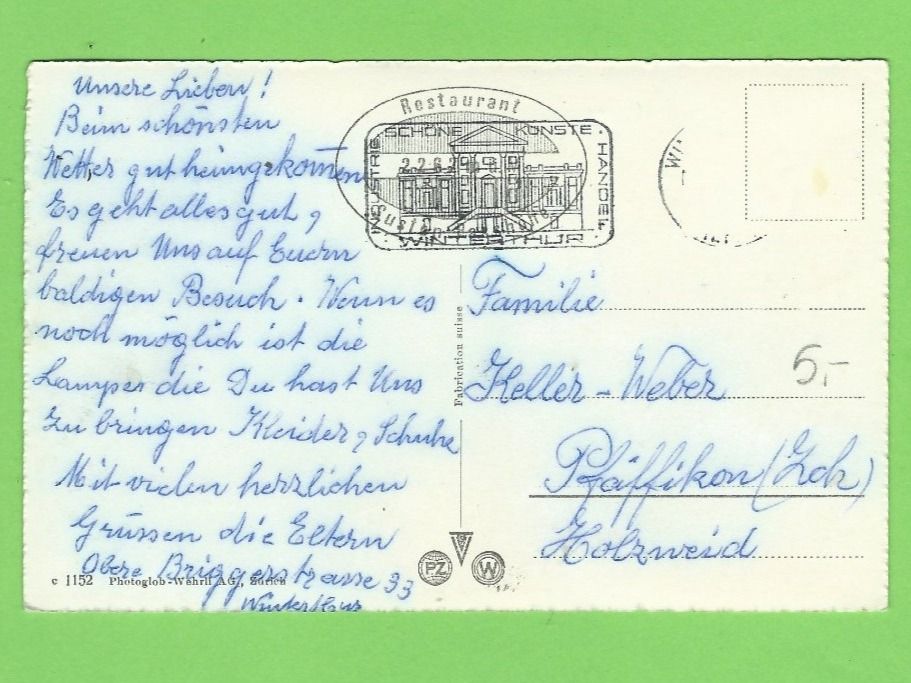 Unsere Lieben!
Beim schönsten
Wetter gut heimgekommen
Es geht alles gut,
freuen Uns auf Euern
baldigen Besuch. Wenn es
noch möglich ist die
Lampen die Du hast Uns
zu bringen Kleider, Schuhe
Mit vielen herzlichen
Grüssen die Eltern
Obere Briggerstrasse 33
Winterthur
c 1152 Photoglob-Wehrli AG., Zürich
Restaurant
SCHÖNE KÜNSTE
INDUSTRIE
HANDEL
WINTERTHUR
Fabrication suisse
Familie
Keller-Weber
5.-
Pfäffikon (Zch)
Holzweid
PZ
W